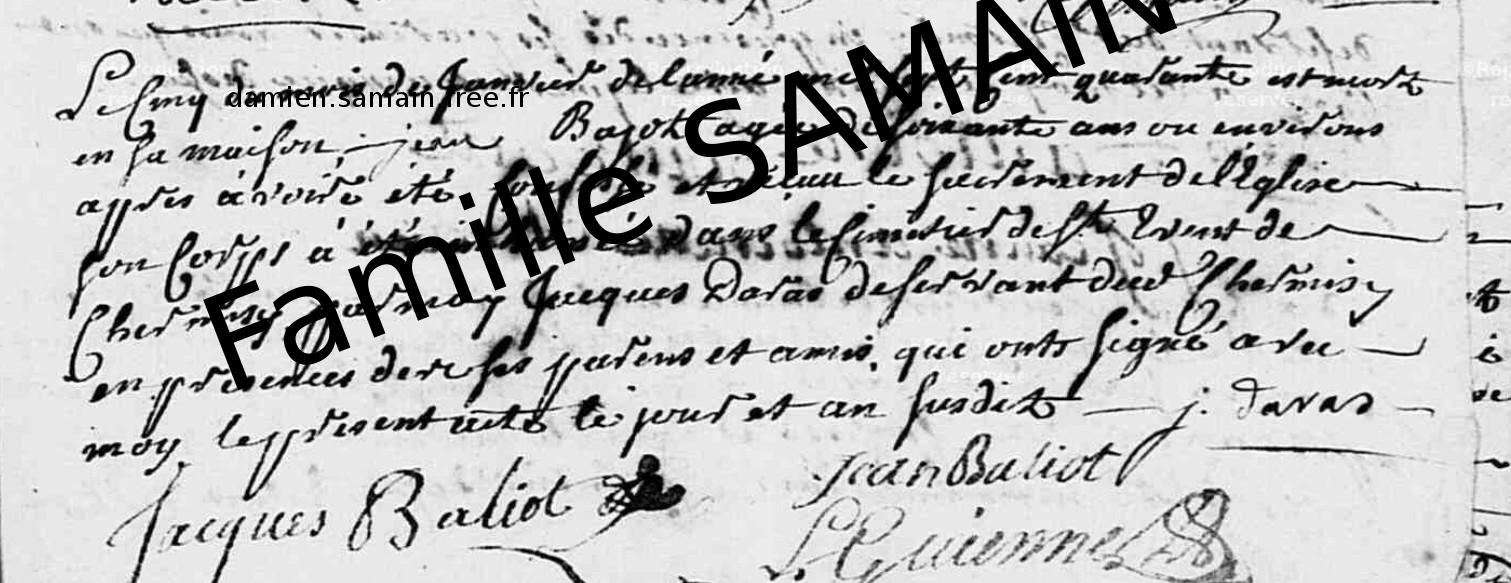 Le Cinq du mois de Janvier de lanné mil sept cent quarante est mort
damien.samain.free.fr
Famille SAMAIN
en sa maison jean Bajot agée de soixante ans ou environs
apres avoire été et réçuu le sacrement de lEglise
son Corps à été inhumé dans le Cimetier de St de
Chermisy par moy Jacques Daras deservant dud Chermisy
en présences de ses parens et amis, qui onts signé avec
moy le present acte le jour et an susdits j. daras
Jacques Baliot Jean Baliot